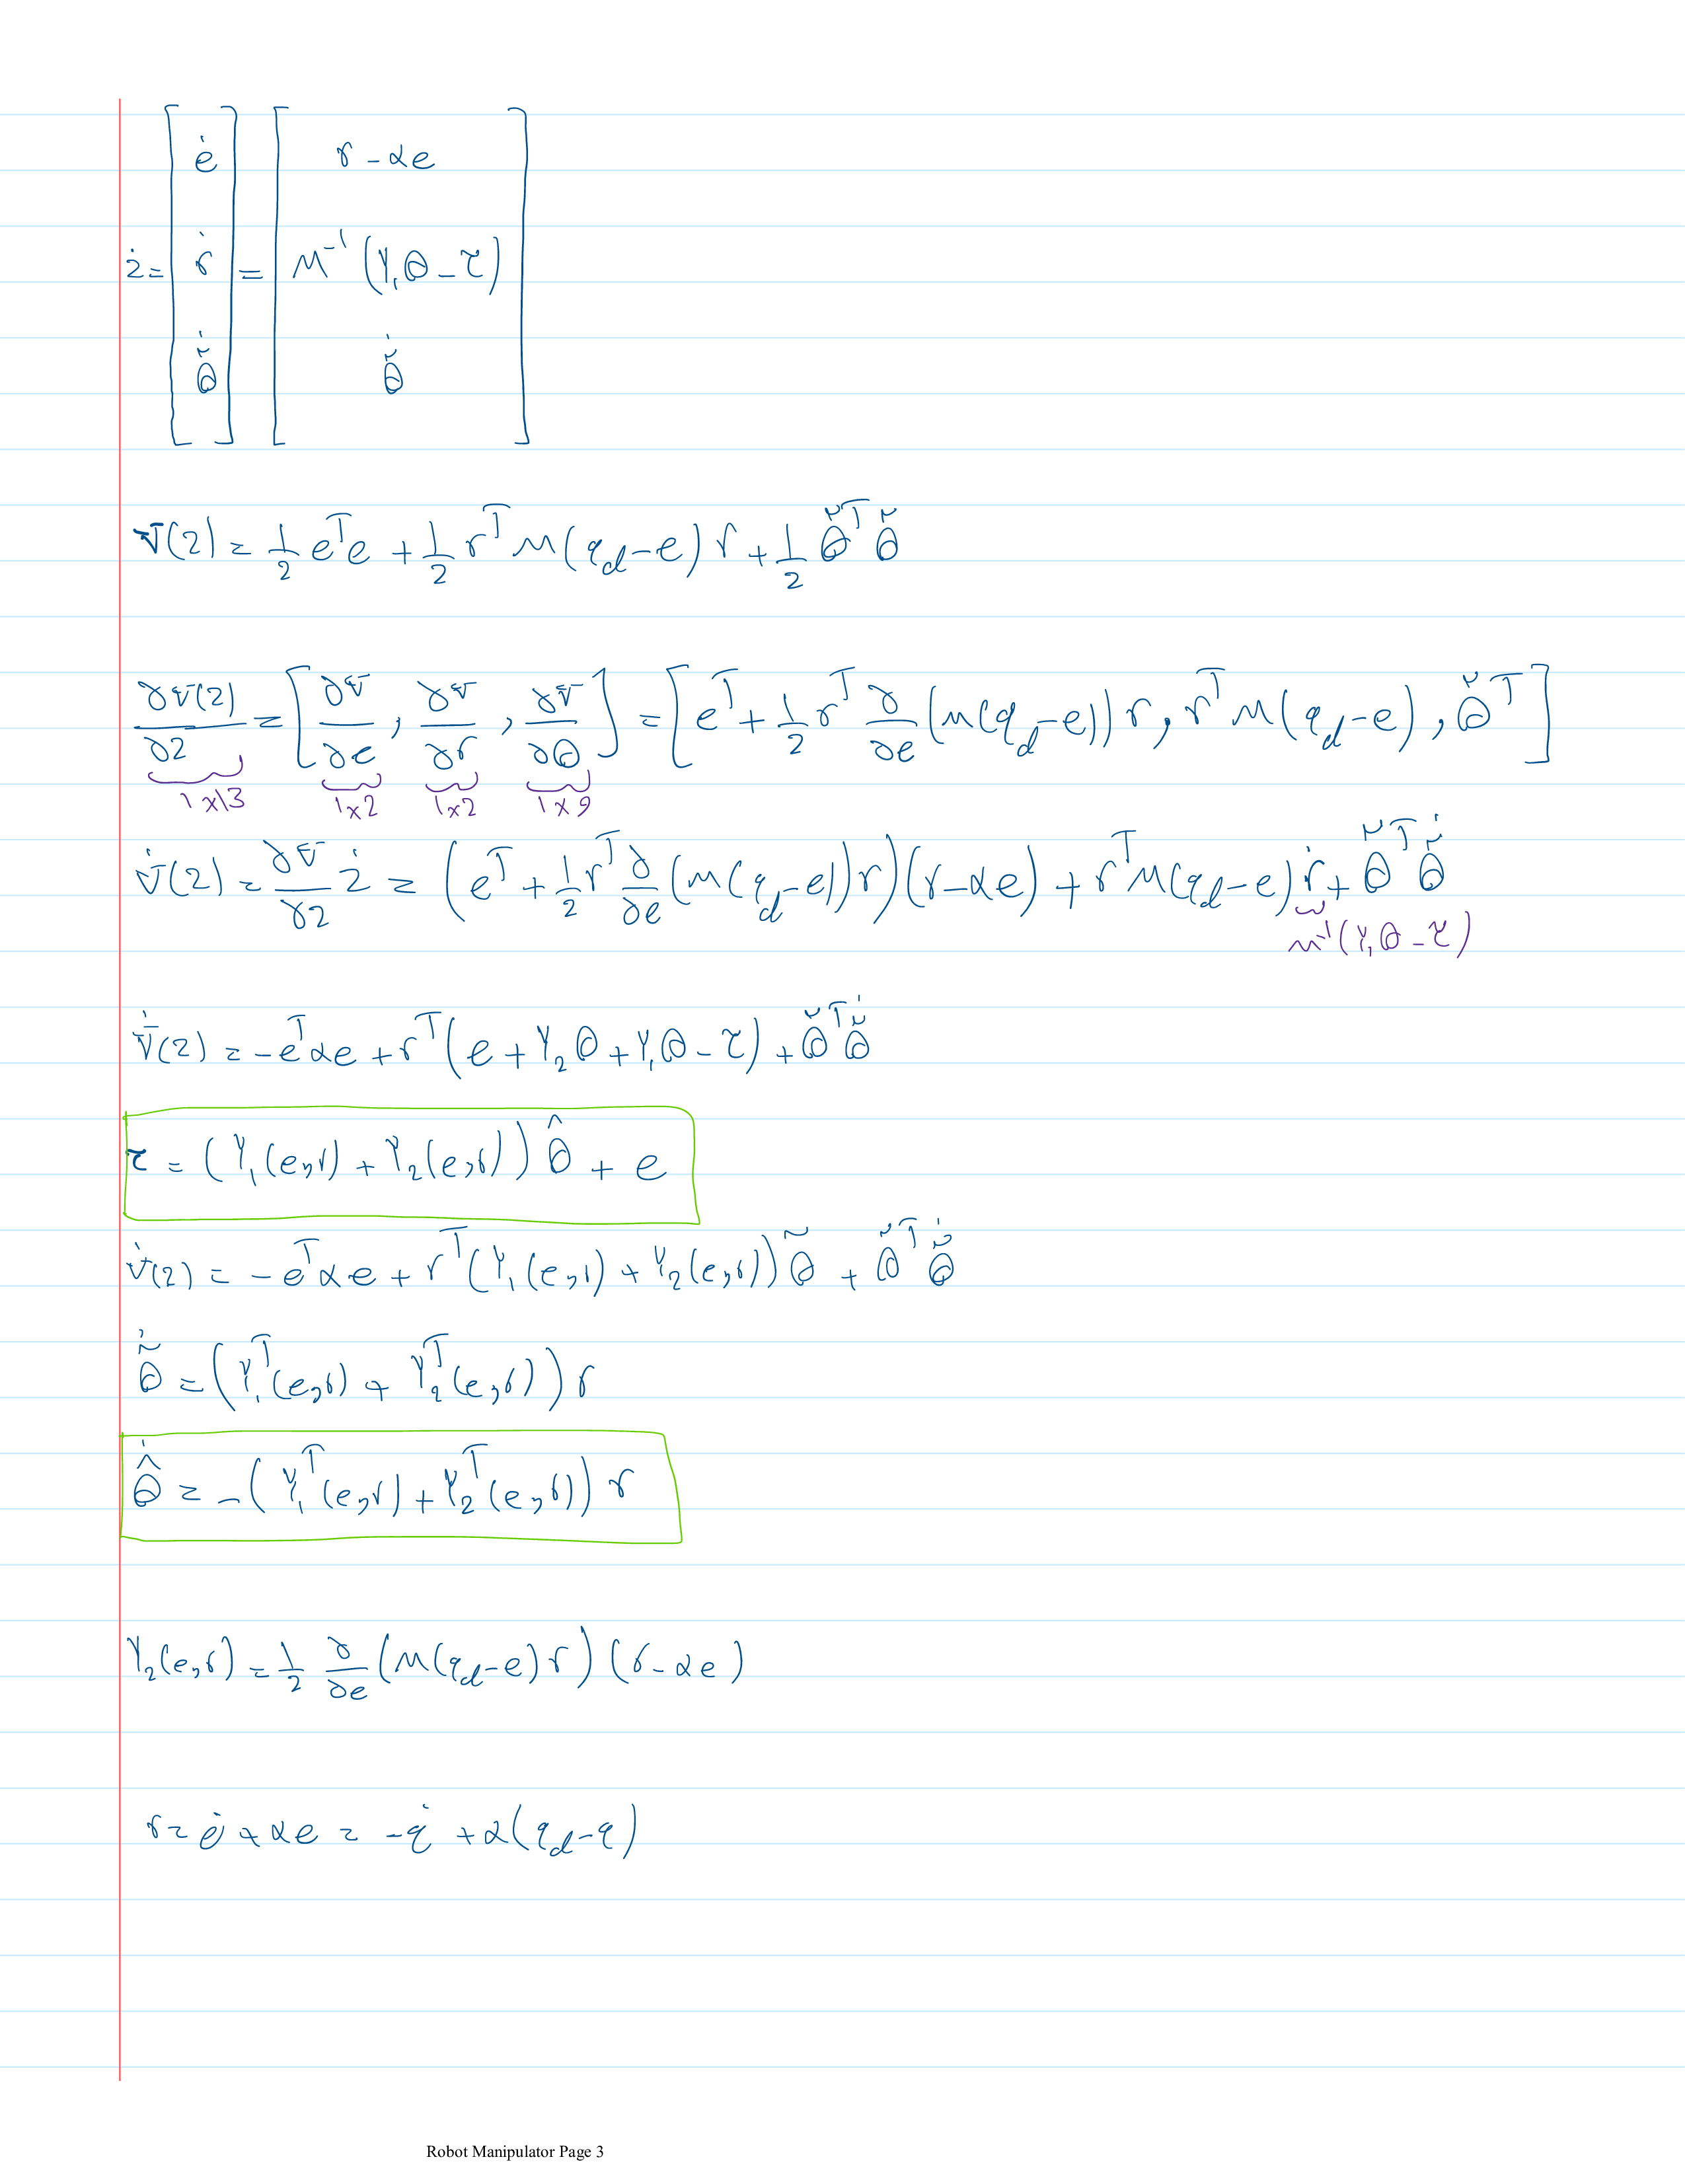 ż = [ ė ; ṙ ; θ̃̇ ] = [ r - αe ; M⁻¹(Y₁θ - τ) ; θ̃̇ ]
V(z) = 1/2 eᵀe + 1/2 rᵀM(q_d - e)r + 1/2 θ̃ᵀθ̃
∂V(z)/∂z = [∂V/∂e, ∂V/∂r, ∂V/∂θ] = [eᵀ + 1/2 rᵀ ∂/∂e (M(q_d - e))r, rᵀM(q_d - e), θ̃ᵀ]
1×13 1×2 1×2 1×9
V̇(z) = ∂V/∂z ż = (eᵀ + 1/2 rᵀ ∂/∂e (M(q_d - e))r)(r - αe) + rᵀM(q_d - e)ṙ + θ̃ᵀθ̃̇
M⁻¹(Y₁θ - τ)
V̇(z) = -eᵀαe + rᵀ(e + Y₂θ + Y₁θ - τ) + θ̃ᵀθ̃̇
τ = (Y₁(e,r) + Y₂(e,r))θ̂ + e
V̇(z) = -eᵀαe + rᵀ(Y₁(e,r) + Y₂(e,r))θ̃ + θ̃ᵀθ̃̇
θ̃̇ = (Y₁ᵀ(e,r) + Y₂ᵀ(e,r))r
θ̂̇ = -(Y₁ᵀ(e,r) + Y₂ᵀ(e,r))r
Y₂(e,r) = 1/2 ∂/∂e (M(q_d - e)r)(r - αe)
r = ė + αe = -q̇ + α(q_d - q)
Robot Manipulator Page 3